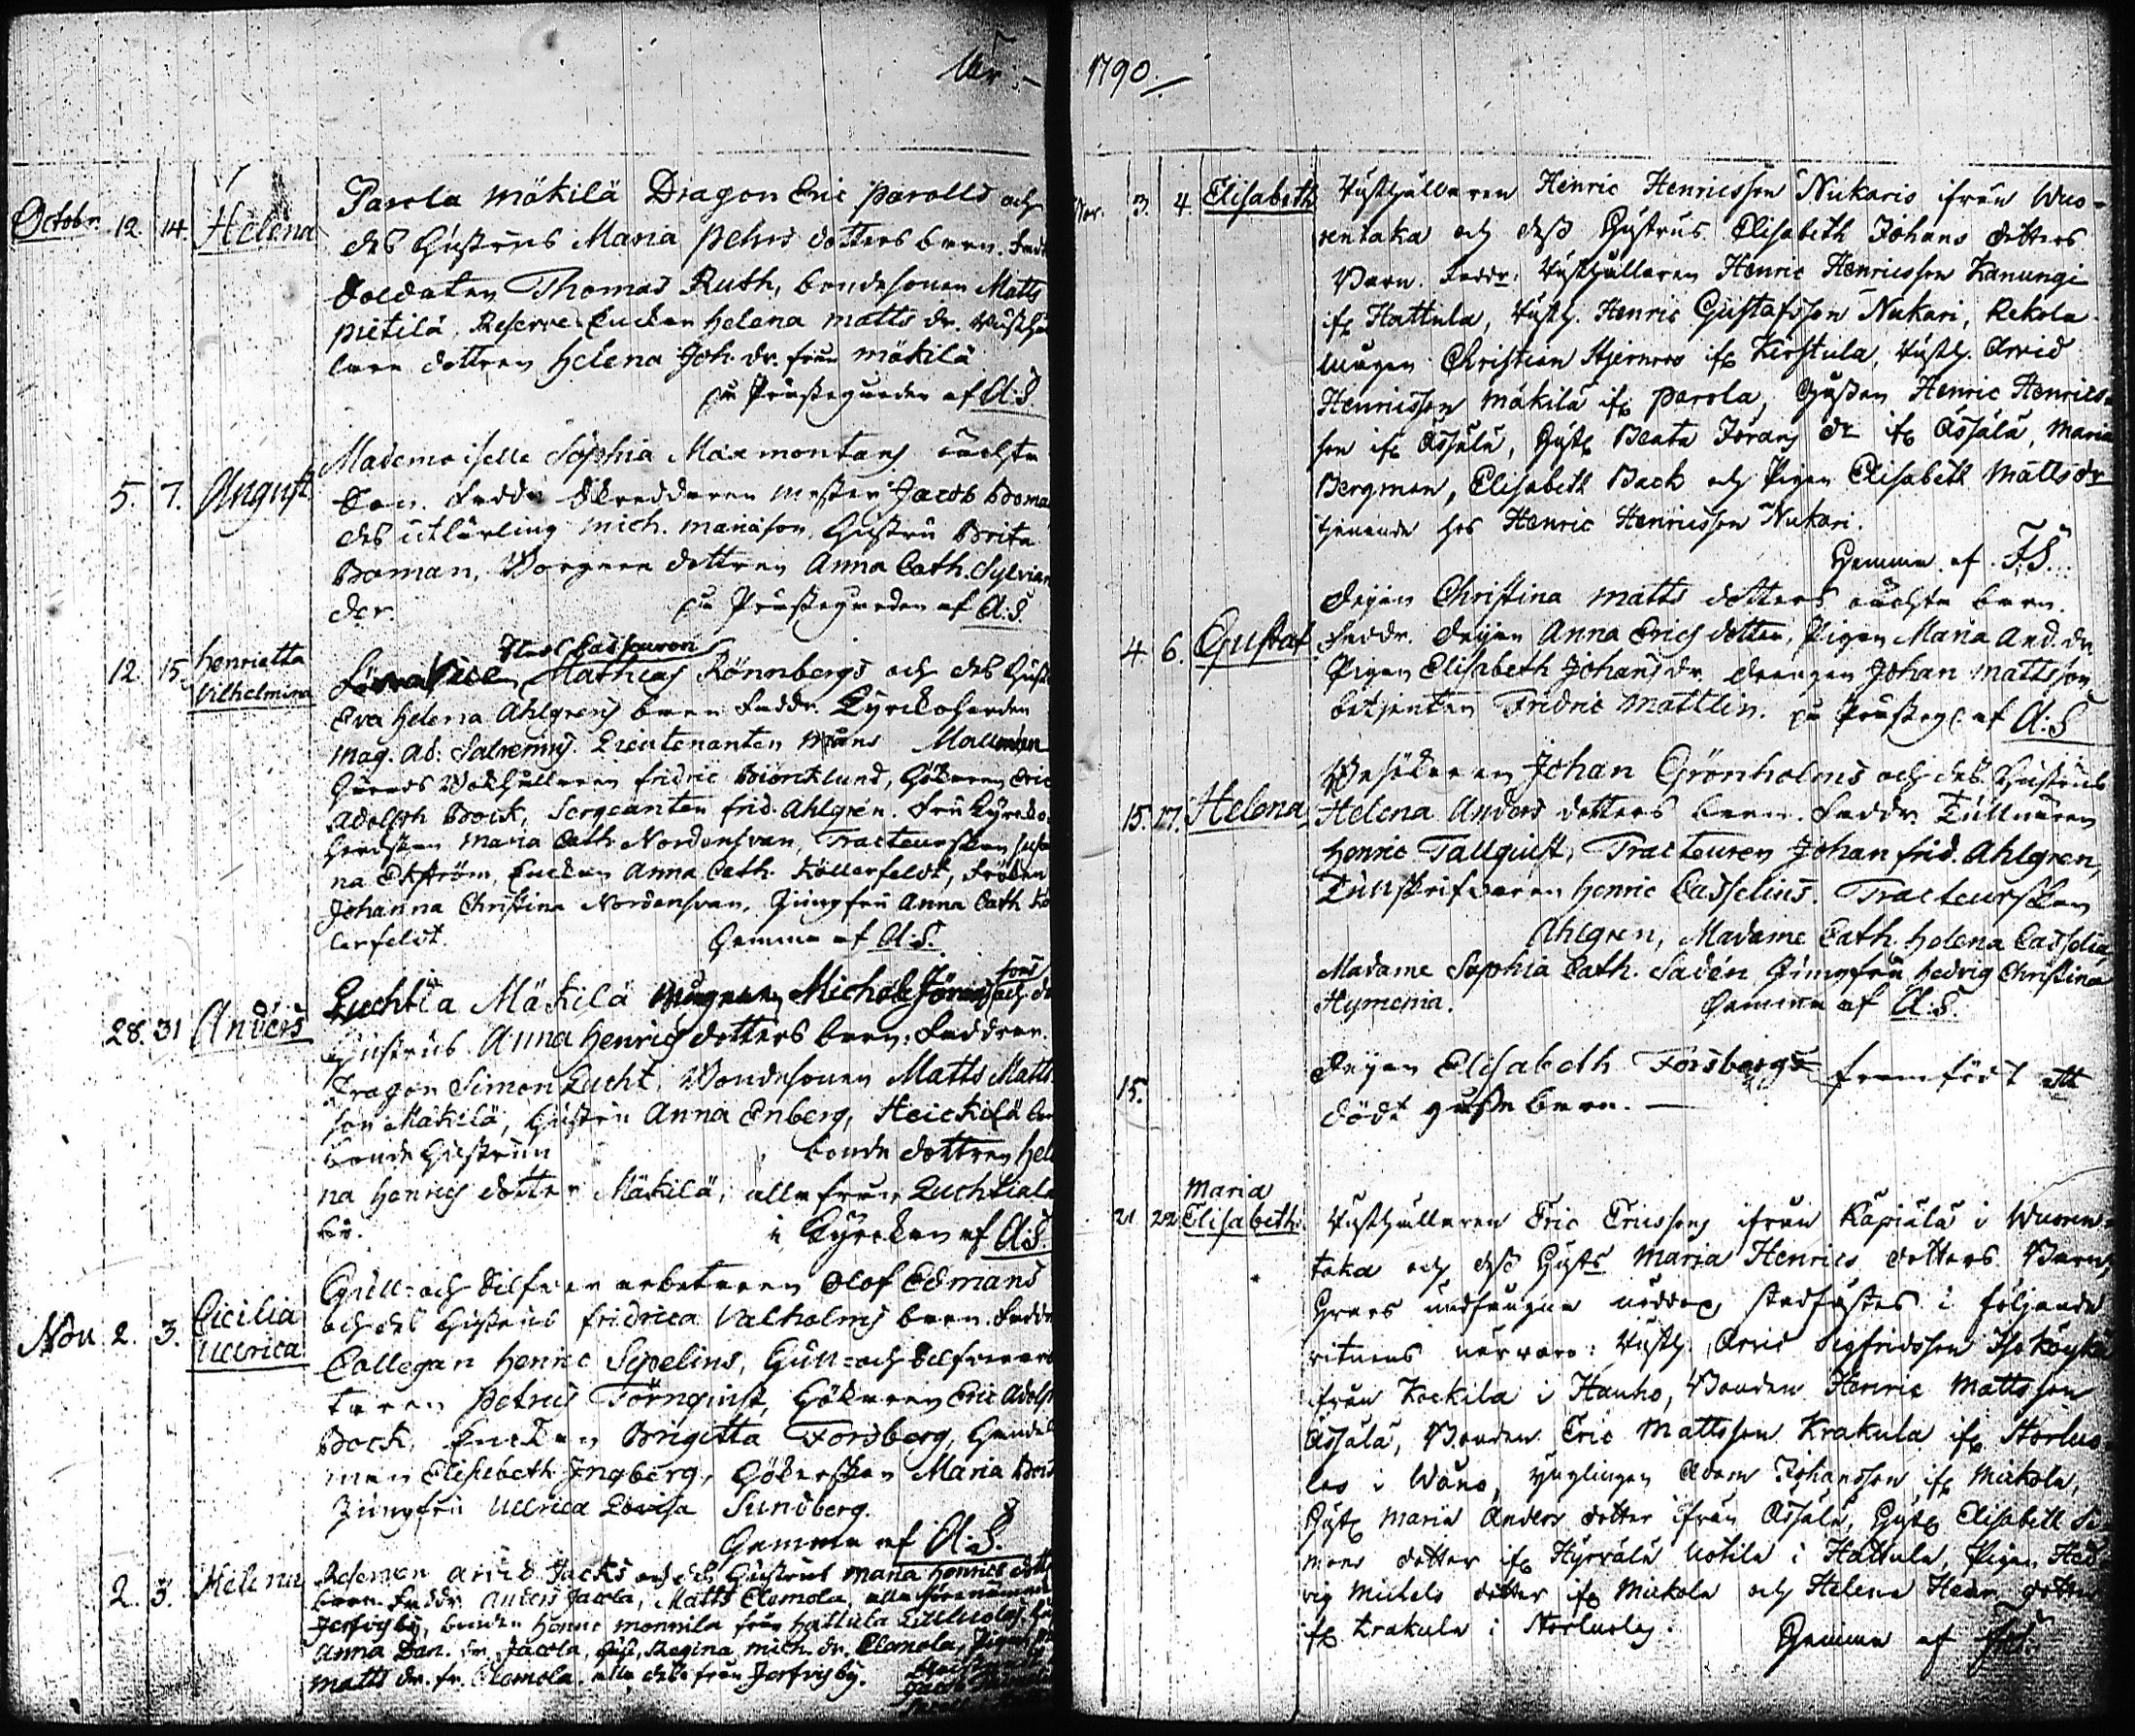 År
Octobr. 12. 14. Helena
Parola Mäkilä Dragon Eric Parolls och
des Hustrus Maria Pehrs dotters barn. Fadd
Soldaten Thomas Ruth, bondesonen Matts
Pietilä, Reserve Enckan Helena Matts dr.
dottren Helena Joh. dr. från Mäkilä
på Prästegården af A:S
5. 7. August
Mademoiselle Sophia Maxmontans oächta
Son. Faddr Skreddaren Mester Jacob Boma
des utlärling Mich. Mariason, Hustru Brita
Boman, Borgare dottren Anna Cath. Sylvian
der. på Prästegården af A.S.
12. 15. Henrietta Vilhelmina
Mathias Rönnbergs och des Hust
Eva Helena Ahlgrens barn Faddr. Kyrckoherden
Mag. Ad: Salvenius. Lieutenanten Måns
Bokhållaren Fridric Biörcklund, Gökaren Eric
Adolph Bock, Sergeanten Frid. Ahlgren. Fru Kyrcko
herdskan Maria Cath. Nordensvan, Tracteurskan Susa
na Ekström, Enckan Anna Cath. Föllerfeldt, Fröken
Johanna Christina Nordensvan, Jungfru Anna Cath. Fö
lerfeldt. Hemma af A.S.
28. 31 Anders
Luchtia Mäkilä Michel Jöran sons och des
Hustrus Anna Henrics dotters barn. Faddrar.
Dragon Simon Lucht, Bondesonen Matts Matts
son Mäkilä, Hustru Anna Enberg, Heickilä
bonde Hustrun bonde dottren Hele
na Henrics dotter Mäkilä, alla från Luchtiala
by. i Kyrckan af A:S.
Nov 2. 3. Cicilia Ullrica
Gull- och Silfver arbetaren Olof Edmans
och des Hustrus Fridrica Valholms barn. Faddr
Collegan Henric Sipelius, Gull- och Silfverarbe
taren Petrus Törnquist, Hökaren Eric Adolph
Bock, Enckan Brigitta Forsberg,
Elisabeth Ingberg, Hökerskan Maria
Jungfru Ullrica Lovisa Sundberg.
Hemma af A.S.
2. 3. Helena
Reserven Arvid Jacks och des Hustrus Maria Henrics dott
barn. Faddr. Anders Jacola, Matts Elomola, alla
by, bonden Henric Monnila från Hattula
Anna Dan. dr. Jacola, Hust. Regina Mich. dr. Elomola, Pigan
Matts dr. fr. Elomola. alla från by.
1790.
Nov. 3. 4. Elisabeth
Rusthållaren Henric Henricsson Nukaris ifrån Wuo-
rentaka och dess Hustrus Elisabeth Johans dotters
Barn. Faddr: Rusthållaren Henric Henricsson Kanungi
ifr Hattula, Rusth. Henric Gustafsson Nukari, Rekola
Christian Stjernroos ifr Kirstula, Rusth. Arvid
Henricsson Mäkilä ifr Parola, Henric Henrics-
son ifr Ässälä, Hustr Beata Jörans dr ifr Ässälä, Maria
Bergman, Elisabeth Back och Pigan Elisabeth Mattsdr
tjenande hos Henric Henricsson Nukari.
Hemma af F:S.
4. 6. Gustaf
Pigan Christina Matts dotters oächta barn.
Faddr. Pigan Anna Erics dotter, Pigan Maria And. dr
Pigan Elisabeth Johans dr. Drengen Johan Mattsson
betjenten Fridric Mattlin. på Prästeg. af A:S
15. 17. Helena
Besökaren Johan Grönholms och des Hustrus
Helena Anders dotters barn. Faddr. Tullnären
Henric Tallquist, Tracteuren Johan Frid. Ahlgren,
Tullskrifvaren Henric Casselius. Tracteurskan
Ahlgren, Madame Cath. Helena Casselia
Madame Sophia Cath. Sadén Jungfru Hedvig Christina
Hymenia. Hemma af A.S.
15.
Pigan Elisabeth Forsbergs framfödt ett
dödt gosse barn.
21 22 Maria Elisabeth
Rusthållaren Eric Ericssons ifrån Käpiälä i Wuoren-
taka och dess Hustrs Maria Henrics dotters Barn,
undfångna nöddop, stadfästes i följande
vitnens närvaro: Rusth. Arvid Sigfridsson Iso Köykkä
från Kockila i Hauho, Bonden Henric Mattsson
Ässälä, Bonden Eric Mattsson Krakula ifr Harluo
las i Wånå, Ynglingen Adam Johansson ifr Mickola,
Hustr Maria Anders dotter ifrån Ässälä, Hustr Elisabeth Si-
mons dotter ifr Hyrvälä Uotila i Hattula, Pigan Hed-
vig Michels dotter ifr Mickola och Helena Henr. dotter
ifr Krakula i Harluolas. Hemma af F:S.